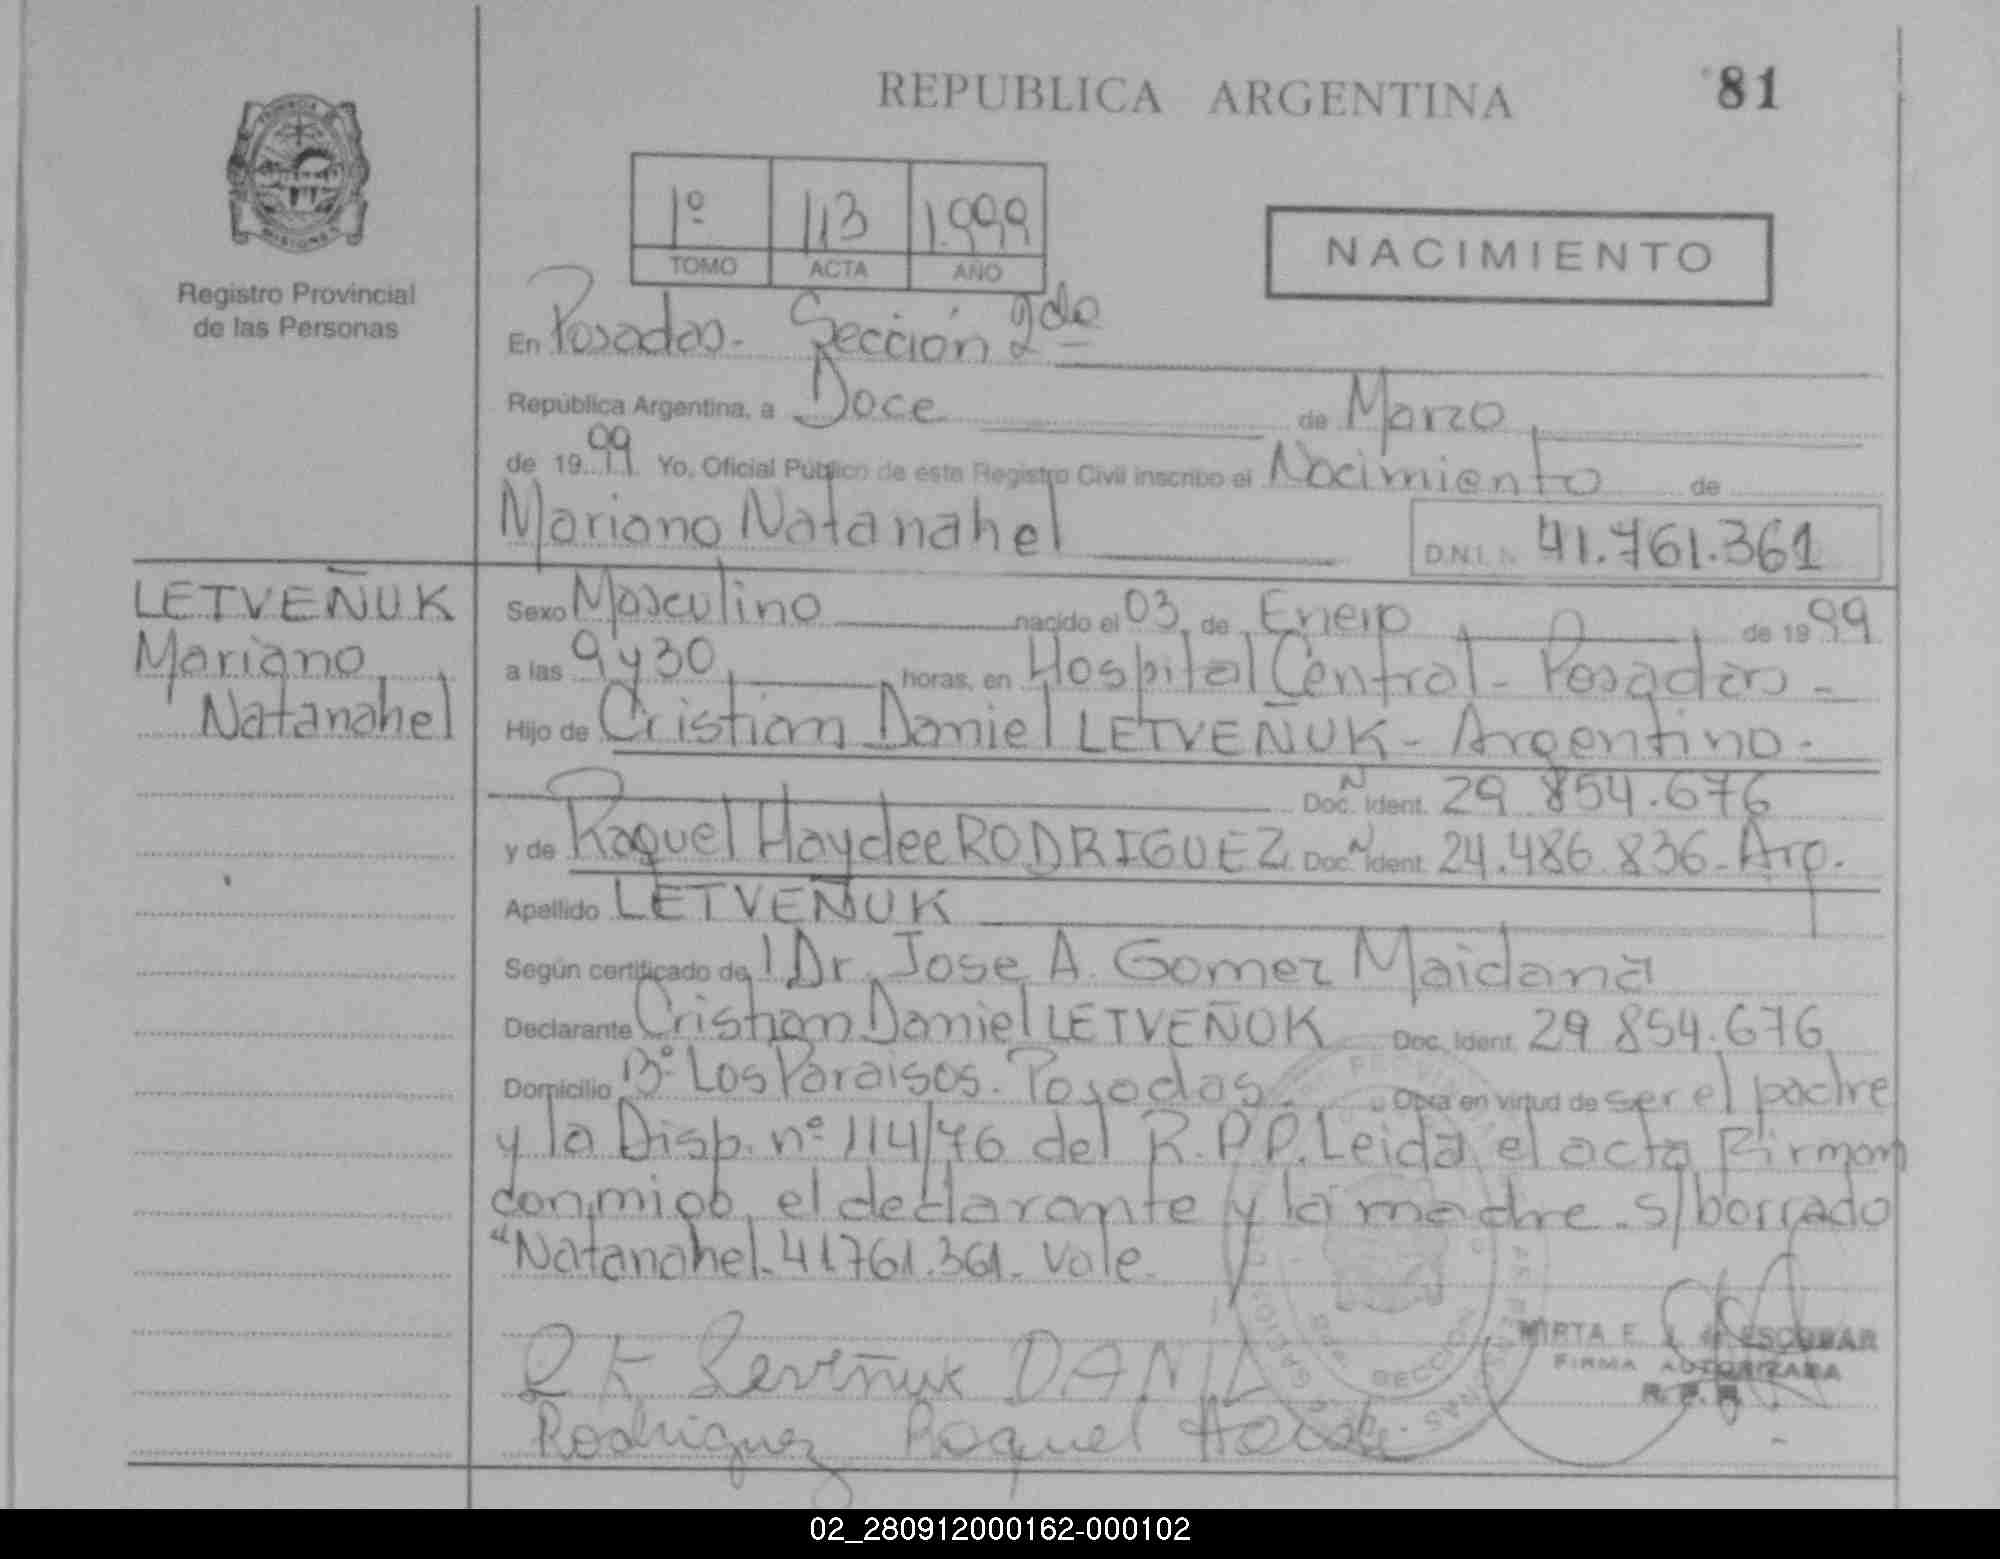 REPUBLICA ARGENTINA
81
1º 113 1.999
TOMO ACTA AÑO
NACIMIENTO
Registro Provincial
de las Personas
En Posadas. Sección 2da
República Argentina, a Doce de Marzo
de 1999 Yo, Oficial Público de este Registro Civil inscribo el Nacimiento de
Mariano Natanahel D.N.I. N 41.761.361
LETVEÑUK
Mariano
Natanahel
Sexo Masculino nacido el 03 de Enero de 1999
a las 9 y 30 horas, en Hospital Central - Posadas -
Hijo de Cristian Daniel LETVEÑUK - Argentino -
Doc. Ident. Nº 29.854.676
y de Raquel Haydee RODRIGUEZ Doc. Nº Ident. 24.486.836 - Arg.
Apellido LETVEÑUK
Según certificado del Dr. Jose A. Gomez Maidana
Declarante Cristian Daniel LETVEÑUK Doc. Ident. 29.854.676
Domicilio Bº Los Paraisos. Posadas. Obra en virtud de ser el padre
y la Disp. nº 114/76 del R.P.P. Leida el acta Firman
conmigo, el declarante y la madre. s/borrado
"Natanahel - 41761.361 - Vale -
DANIL
Rodriguez Raquel
MIRTA E. ESCOBAR
FIRMA AUTORIZADA
R.P.P.
02_280912000162-000102